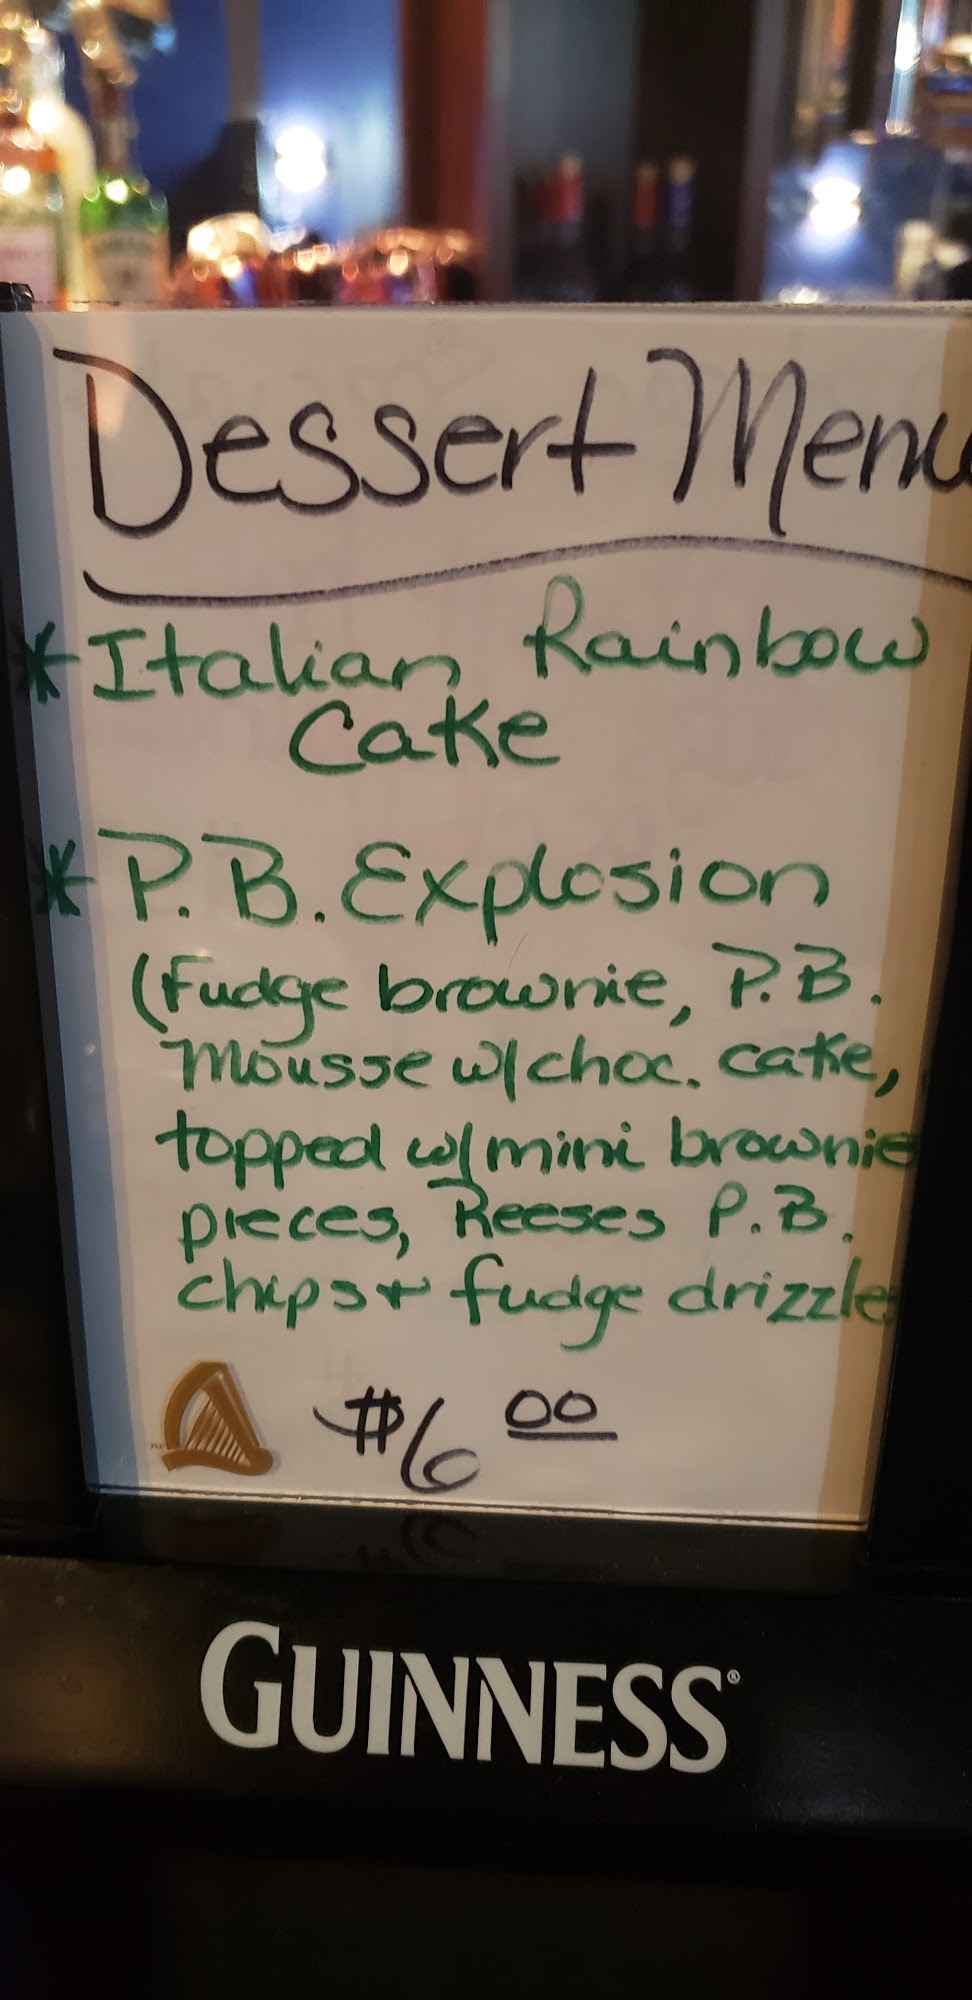 Dessert Menu
* Italian Rainbow
Cake
* P.B. Explosion
(Fudge brownie, P.B.
Mousse w/choc. cake,
topped w/mini brownie
pieces, Reeses P.B.
chips + fudge drizzle
$6 00
GUINNESS®